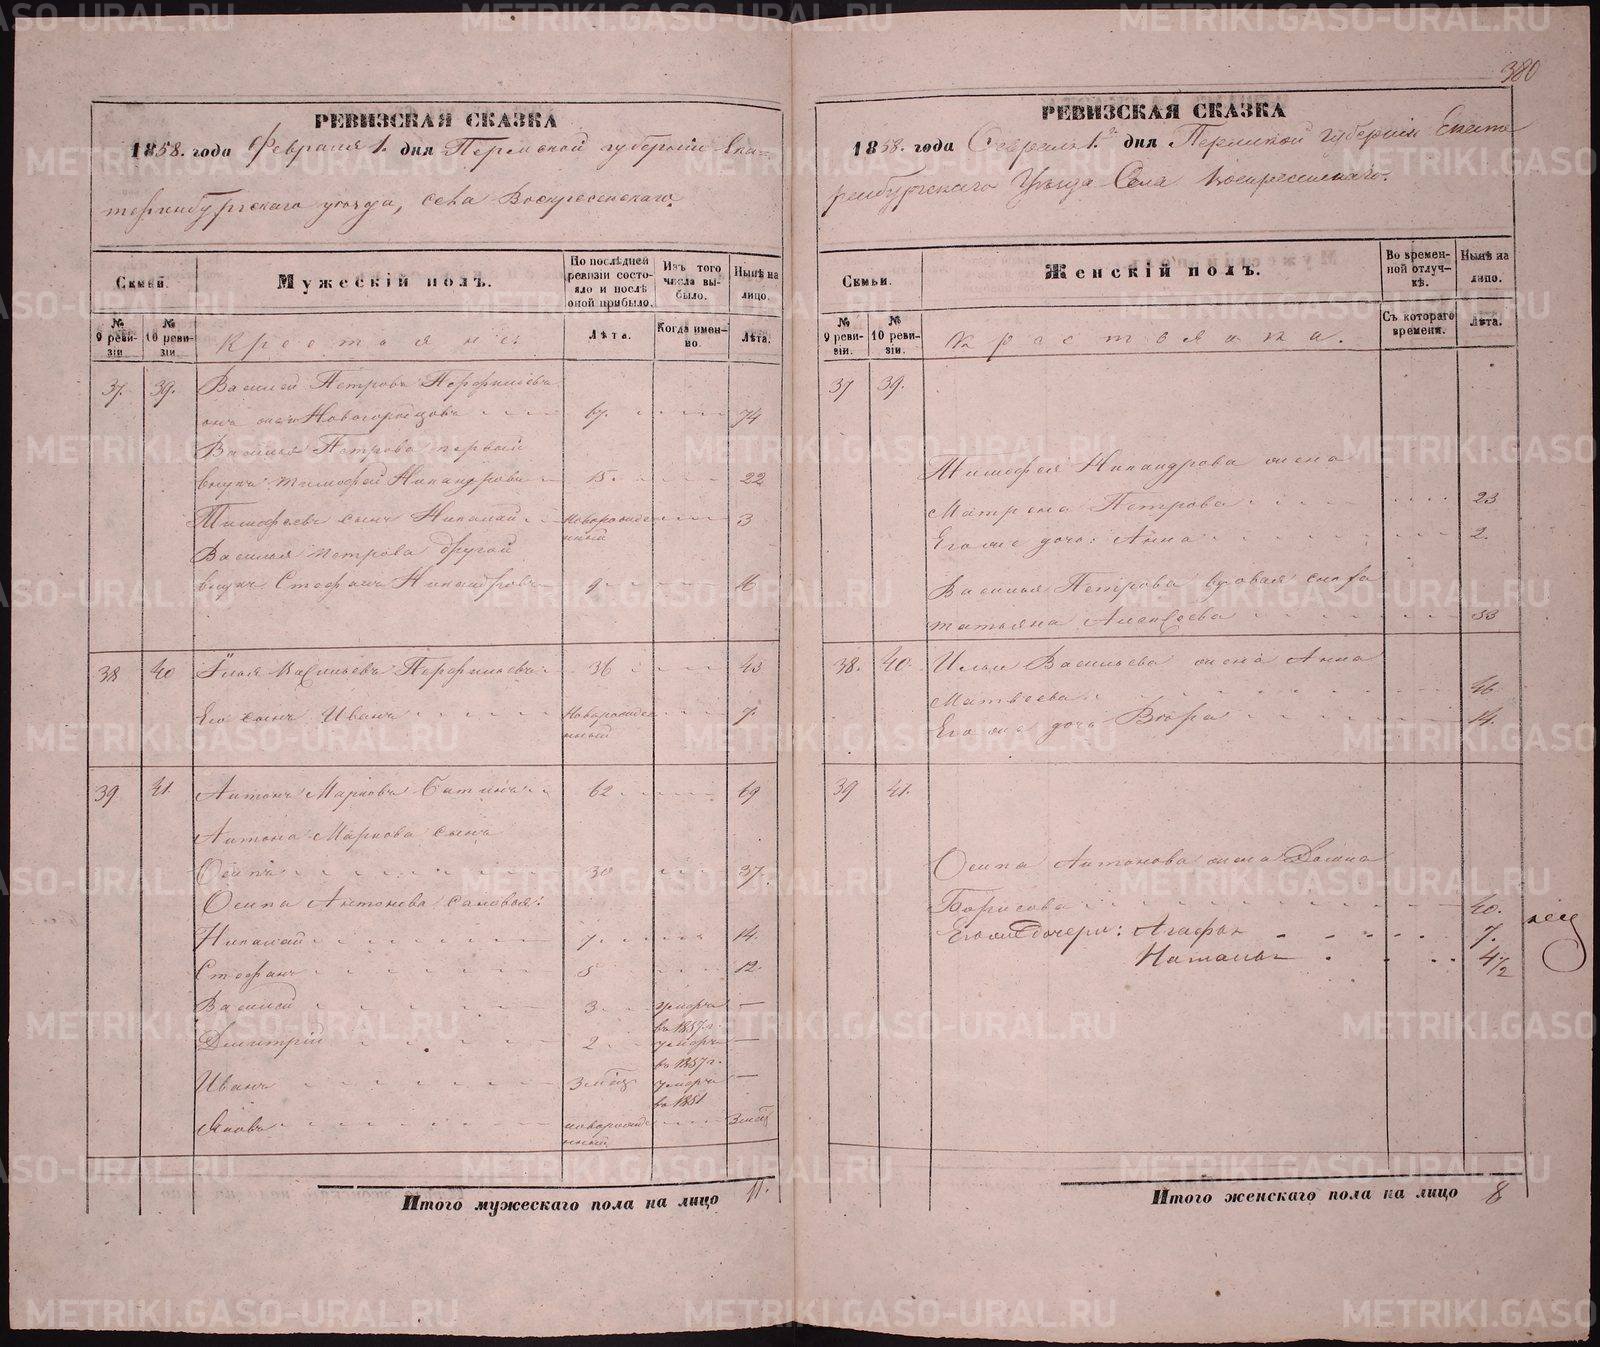 380
РЕВИЗСКАЯ СКАЗКА
1858. года Февраля 1. дня Пермской губернии Ека-
теринбургскаго уезда, села Воскресенскаго.
Семьи.
Мужескій полъ.
По послѣдней ревизіи состояло и послѣ оной прибыло.
Изъ того числа выбыло.
Нынѣ на лицо.
№ 9 ревизіи
№ 10 ревизіи
Крестьяне:
Лѣта.
Когда именно.
Лѣта.
37. 39. Василей Петровъ Перфильевъ
онъ же Новогородцовъ 67. 74
Василья Петрова первый
внукъ Тимофей Никандровъ 15. 22
Тимофеевъ сынъ Николай новорожденный 3
Василья Петрова другой
внукъ Стефанъ Никандровъ 9 16
38 40 Илья Васильевъ Перфильевъ 36 43
Его сынъ Иванъ новорожденный 7.
39 41. Антонъ Марковъ 62 69
Антона Маркова сынъ
Осипъ 30 37.
Осипа Антонова сыновья:
Николай 7 14.
Стефанъ 5 12.
Василей 3 умеръ въ 1857 г. —
Дмитрій 2 умеръ въ 1857 г. —
Иванъ 3 мѣс. умеръ въ 1851 —
Яковъ новорожденный 3 мѣс
Итого мужескаго пола на лицо 11.
РЕВИЗСКАЯ СКАЗКА
1858. года Февраля 1. дня Пермской губерніи Екате
ринбургскаго Уѣзда Села Воскресенскаго.
Семьи.
Женскій полъ.
Во временной отлучкѣ.
Нынѣ на лицо.
№ 9 ревизіи.
№ 10 ревизіи.
Крестьянка.
Съ котораго времени.
Лѣта.
37 39.
Тимофея Никандрова жена
Матрена Петрова 23
Его же дочь: Анна 2.
Василья Петрова вдовая сноха
Татьяна Алексѣева 53
38. 40. Ильи Васильева жена Анна
Матвѣева 46
Его же дочь Вѣра 14.
39 41.
Осипа Антонова жена
Борисова 40.
Его же дочери: Агафья 7.
Наталья 4 1/2
Итого женскаго пола на лицо 8
METRIKI.GASO-URAL.RU